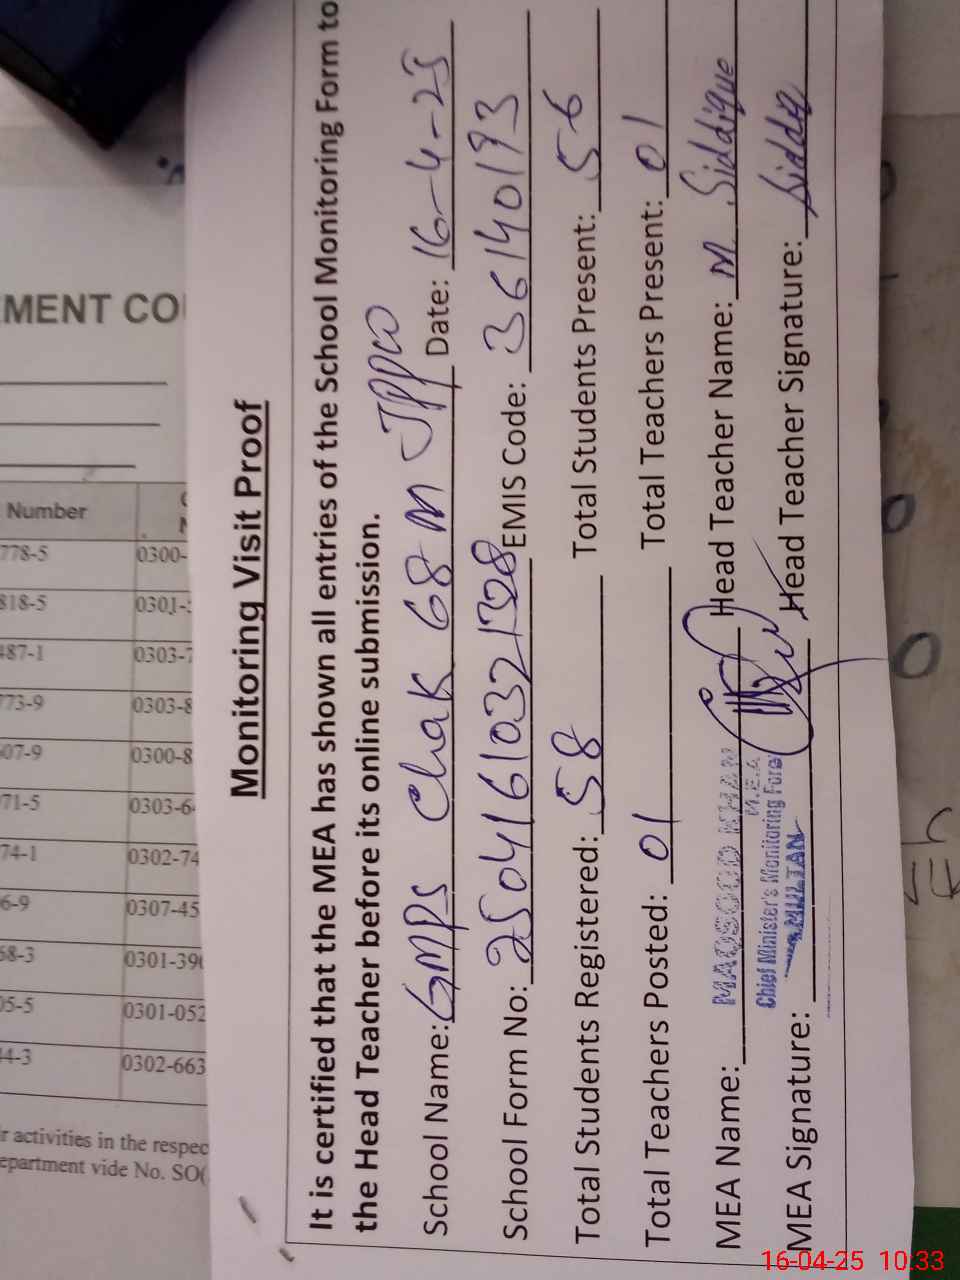 Monitoring Visit Proof
It is certified that the MEA has shown all entries of the School Monitoring Form to
the Head Teacher before its online submission.
School Name: GMPS Chak 68 M Jppw Date: 16-4-25
School Form No: 25041610321328 EMIS Code: 36140193
Total Students Registered: 58 Total Students Present: 56
Total Teachers Posted: 01 Total Teachers Present: 01
MEA Name: MAQSOOD KHAN Head Teacher Name: M Siddique
M.E.A
Chief Minister's Monitoring Force
MULTAN
MEA Signature: Head Teacher Signature: Siddiq
MENT CO
Number
778-5 0300-
818-5 0301-
487-1 0303-7
773-9 0303-8
607-9 0300-8
71-5 0303-6
74-1 0302-74
6-9 0307-45
58-3 0301-390
05-5 0301-052
44-3 0302-663
r activities in the respec
epartment vide No. SO(
16-04-25 10:33